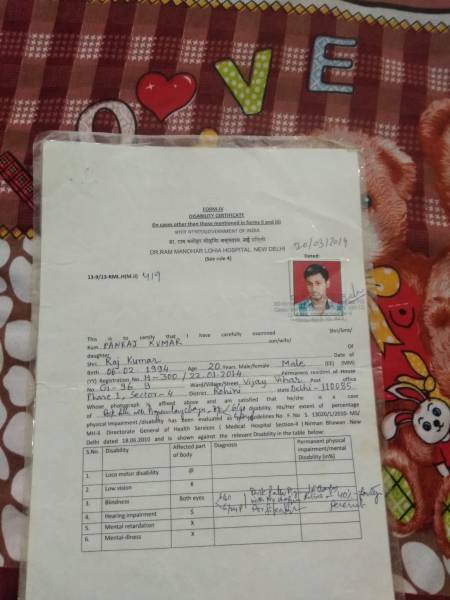 LOVE
FORM-IV
DISABILITY CERTIFICATE
(In cases other than those mentioned in forms II and III)
GOVERNMENT OF INDIA
डा. राम मनोहर लोहिया अस्पताल, नई दिल्ली
DR.RAM MANOHAR LOHIA HOSPITAL, NEW DELHI
(See rule 4)
20/03/2014
Dated:
13-9/13-RML.H(M.II) 419
This is to certify that I have carefully examined Shri/Smt/
Kum PANKAJ KUMAR son/wife/
daughter
Shri Raj Kumar Date of
Birth 06 02 1994 Age 20 Years. Male/female Male (EE) (MM)
(YY) Registration No. H-300/22.01.2014 permanent resident of House
No. G1-96 B Ward/Village/Street Vijay Vihar Post office
Phase 1, Sector-4 District Rohini state Delhi-110085
Whose photograph is affixed above and am satisfied that he/she is a case
of disability. His/Her extent of percentage
physical impairment/disability has been evaluated as guidelines No. F. No S 13020/1/2010- MS/
MH-II Directorate General of Health Services ( Medical Hospital Section-II ) Nirman Bhawan New
Delhi dated 18.06.2010 and is shown against the relevant Disability in the table below:
S.No. Disability Affected part of Body Diagnosis Permanent physical impairment/mental Disability (in%)
1. Loco motor disability @
2. Low vision #
3. Blindness Both eyes
4. Hearing impairment S
5. Mental retardation X
6. Mental-illness X